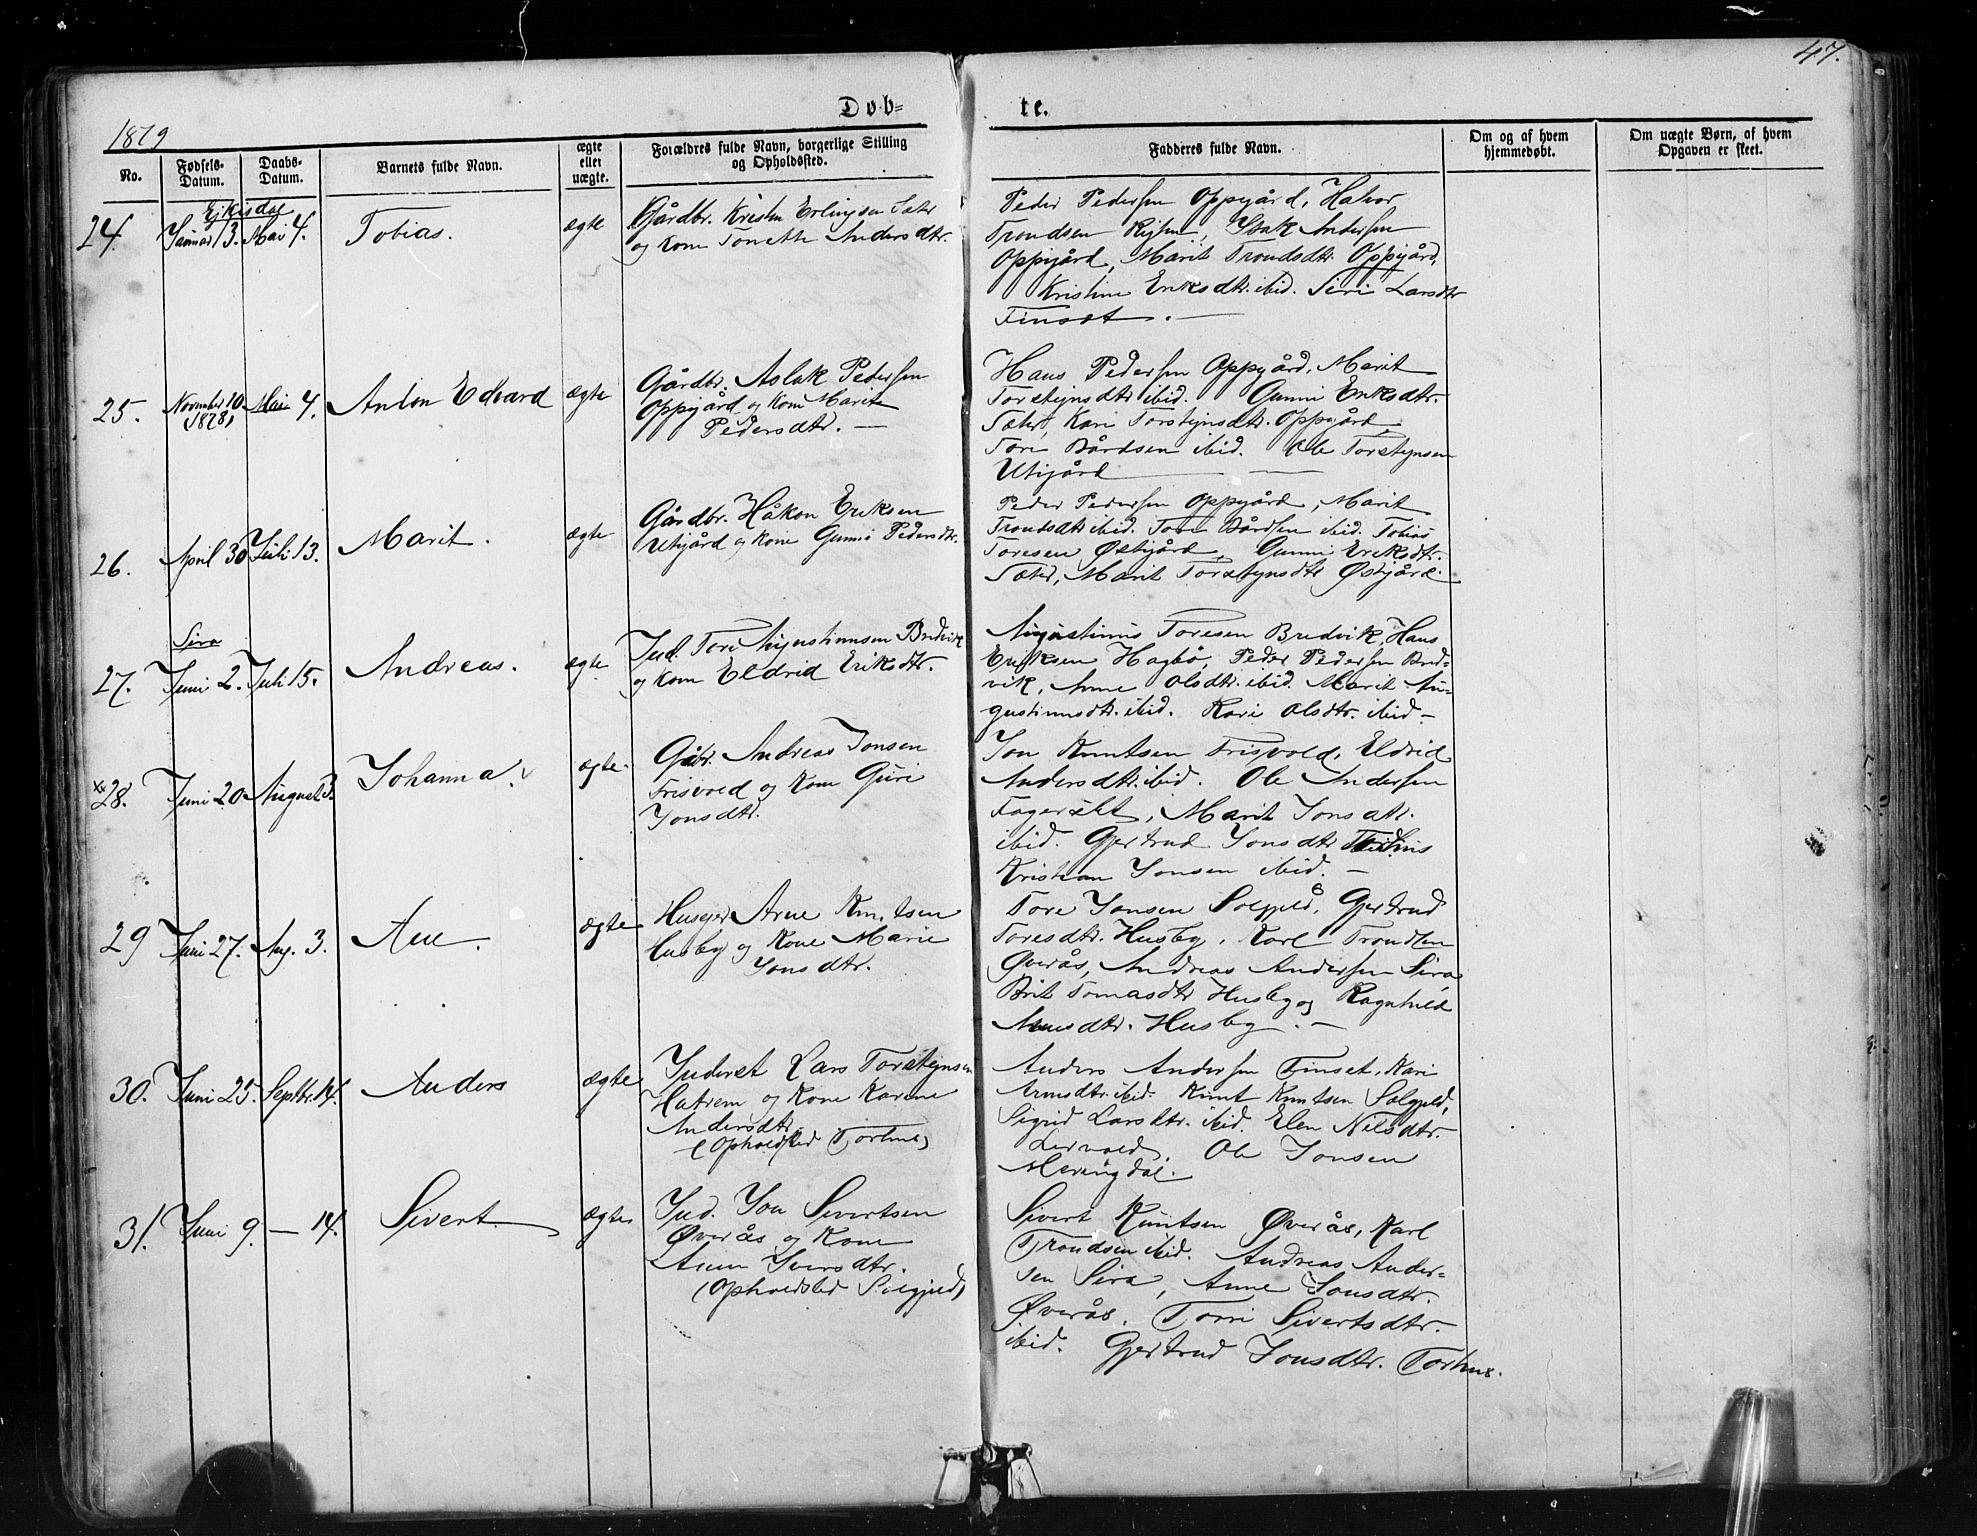 47.
Døb-
te.
1879
No.
Fødsels-
Datum.
Daabs-
Datum.
Barnets fulde Navn.
ægte
eller
uægte.
Forældres fulde Navn, borgerlige Stilling
og Opholdssted.
Fadderes fulde Navn.
Om og af hvem
hjemmedøbt.
Om uægte Børn, af hvem
Opgaven er skeet.
Ejkisdal
24. Januar 13. Mai 4. Tobias. ægte
Gårdbr. Kristen Erlingsen Sæter
og Kone Tonette Andersdtr.
Peder Pedersen Oppigård, Halvor
Trondsen Rejsen, Isak Andersen
Oppigård, Marit Trondsdtr. Oppigård,
Kristine Eriksdtr. ibid. Siri Larsdtr
Finset. —
25. November 10 1878, Mai 4. Anton Edvard ægte
Gårdbr. Aslak Pedersen
Oppigård og Kone Marit
Pedersdtr. —
Hans Pedersen Oppigård, Marit
Torstejnsdtr ibid. Gunni Eriksdtr.
Sæter, Kari Torstejnsdtr. Oppigård,
Tore Bårdsen ibid. Ole Torstejnsen
Utigård —
26. April 30 Juli 13. Marit. ægte
Gårdbr. Håkon Eriksen
Utigård og Kone Gunni Pedersdtr.
Peder Pedersen Oppigård, Marit
Trondsdtr ibid. Tore Bårdsen ibid. Tobias
Toresen Østigård, Gunni Eriksdtr.
Sæter, Marit Torstejnsdtr Østigård.
Sira
27. Juni 2. Juli 15. Andreas. ægte
Ind. Tore Augustinusen Bredvik
og Kone Eldrid Eriksdtr.
Augustinus Toresen Bredvik, Hans
Eriksen Hagbø, Peder Pedersen Bred-
vik, Anne Olsdtr. ibid. Marit Au-
gustinusdtr. ibid. Kari Olsdtr. ibid —
28. Juni 20 August 3. Johanna. ægte.
Gåbr. Andreas Jonsen
Frisvold og Kone Guri
Jonsdtr.
Jon Knutsen Frisvold, Eldrid
Andersdtr. ibid. Ole Andersen
Fagerslet, Marit Jonsdtr.
ibid. Gjertrud Jonsdtr Torhus
Kristian Jonsen ibid. —
29 Juni 27. Aug. 3. Ane. ægte
Husejer Arne Knutsen
Husby og Kone Marie
Jonsdtr.
Tore Jonsen Solgjeld, Gjertrud
Toresdtr. Husby, Karl Trondsen
Øverås, Andreas Andersen Sira
Brit Tomasdtr Husby og Ragnhild
Arnesdtr. Husby. —
30. Juni 25. Septbr. 14. Anders ægte
Inderst Lars Torstejnsen
Hatrem og Kone Karine
Andersdtr.
(Opholdsted Torhus)
Anders Andersen Finset, Kari
Arnesdtr. ibid. Knut Knutsen Solgjeld,
Sigrid Larsdtr. ibid. Elen Nilsdtr.
Lervold, Ole Jonsen
Meringdal.
31. Juni 9. — 14. Sivert. ægte
Ind. Jon Sivertsen
Øverås og Kone
Anne Iversdtr.
(Opholdsted Solgjeld)
Sivert Knutsen Øverås, Karl
Trondsen ibid. Andreas Ander-
sen Sira, Anne Jonsdtr.
Øverås, Torri Sivertsdtr.
ibid. Gjertrud Jonsdtr. Torhus.